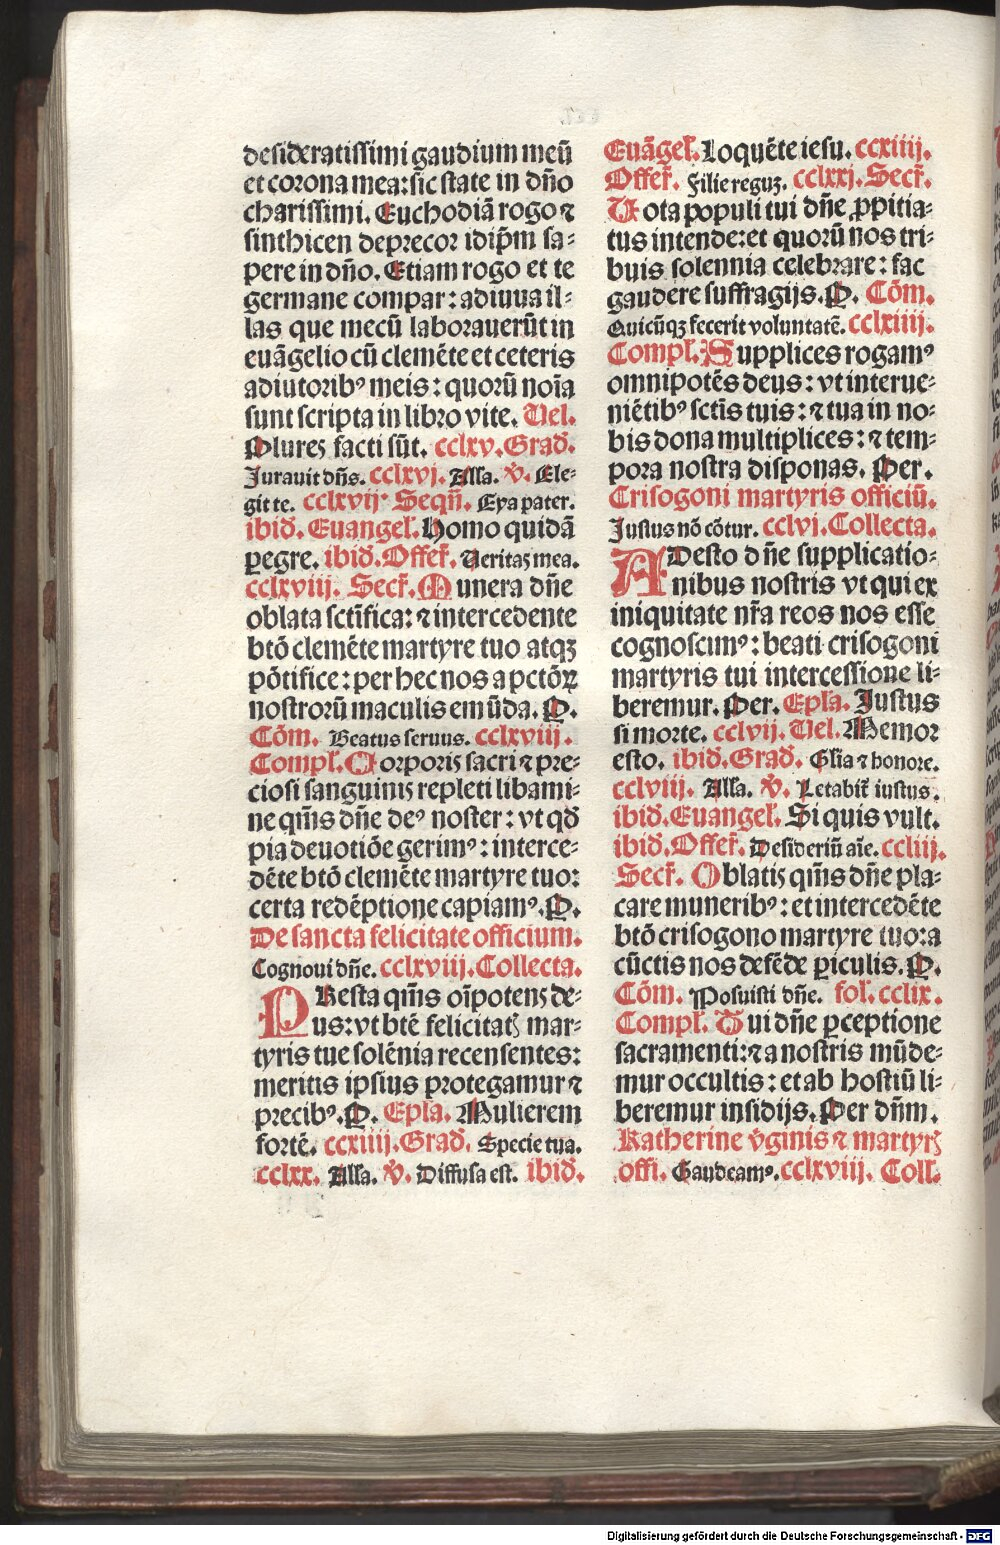 desideratissimi gaudium meū
et corona mea: sic state in dn̄o
charissimi. Euchodiā rogo ⁊
sinthicen deprecor idip̄m sa⸗
pere in dn̄o. Etiam rogo et te
germane compar: adiuua il⸗
las que mecū laborauerūt in
euāgelio cū clemēte et ceteris
adiutoribꝰ meis: quorū noīa
sunt scripta in libro vite. Uel.
Plures facti sūt. cclxv. Grad̄.
Jurauit dn̄s. cclxvj. Alla. v̄. Ele⸗
git te. cclxvij Seqn̄. Eya pater.
ibid̄. Euangel̄. Homo quidā
pegre. ibid̄. Offer̄. Ueritas mea.
cclxviij. Secr̄. Munera dn̄e
oblata sctīfica: ⁊ intercedente
btō clemēte martyre tuo atqꝫ
pōtifice: per hec nos a pctōꝝ
nostrorū maculis emūda. P.
Cōm. Beatus seruus. cclxviij.
Compl̄. Corporis sacri ⁊ pre⸗
ciosi sanguinis repleti libami⸗
ne qm̄s dn̄e deꝰ noster: vt qd̄
pia deuotiōe gerimꝰ: interce⸗
dēte btō clemēte martyre tuo:
certa redēptione capiamꝰ. P.
De sancta felicitate officium.
Cognoui dn̄e. cclxviij. Collecta.
PResta qm̄s oīpotens de⸗
us: vt btē felicitatꝭ mar⸗
tyris tue solēnia recensentes:
meritis ipsius protegamur ⁊
precibꝰ. P. Epl̄a. Mulierem
fortē. ccxiiij. Grad̄. Specie tua.
cclxx. Alla. v̄. Diffusa est. ibid̄.
Euāgel̄. Loquēte iesu. ccxiiij.
Offer̄. Filie reguꝫ. cclxxj. Secr̄.
Uota populi tui dn̄e ꝓpitia⸗
tus intende: et quorū nos tri⸗
buis solennia celebrare: fac
gaudere suffragijs. P. Cōm.
Quicūqꝫ fecerit voluntatē. cclxiiij.
Compl̄. Supplices rogamꝰ
omnipotēs deus: vt interue⸗
niētibꝰ sctīs tuis: ⁊ tua in no⸗
bis dona multiplices: ⁊ tem⸗
pora nostra disponas. Per.
Crisogoni martyris officiū.
Justus nō cōtur. cclvi. Collecta.
ADesto dn̄e supplicatio⸗
nibus nostris vt qui ex
iniquitate nr̄a reos nos esse
cognoscimꝰ: beati crisogoni
martyris tui intercessione li⸗
beremur. Per. Epl̄a. Justus
si morte. cclvij. Uel. Memor
esto. ibid̄. Grad̄. Gl̄ia ⁊ honore.
cclviij. Alla. v̄. Letabit̄ iustus.
ibid̄. Euangel̄. Si quis vult.
ibid̄. Offer̄. Desideriū aīe. ccliij.
Secr̄. Oblatis qm̄s dn̄e pla⸗
care muneribꝰ: et intercedēte
btō crisogono martyre tuo: a
cūctis nos defēde ꝑiculis. P.
Cōm. Posuisti dn̄e. fol. cclix.
Compl̄. Tui dn̄e ꝑceptione
sacramenti: ⁊ a nostris mūde⸗
mur occultis: et ab hostiū li⸗
beremur insidijs. Per dn̄m.
Katherine v̄ginis ⁊ martyrꝭ
offi. Gaudeamꝰ. cclxviij. Coll̄.
Digitalisierung gefördert durch die Deutsche Forschungsgemeinschaft - DFG